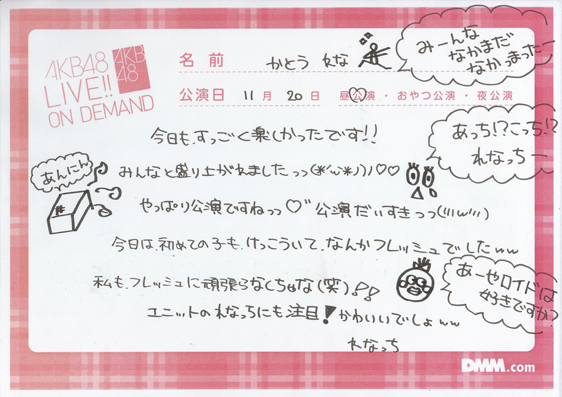 AKB48
LIVE!!
ON DEMAND
AKB
48
名前 かとう れな
公演日 11月 20日 昼公演・おやつ公演・夜公演
みーんな
なかまだ
なかまったー
今日も、すっごく楽しかったです!!
あっち!?こっち!?
れなっち
ー
あんにん
みんなと盛り上がれましたっっ(*'ω'*)ノ♡♡
やっぱり公演ですねっっ♡ 公演だいすきっっ(///ω///)
今日は、初めての子も、けっこういて、なんかフレッシュでしたww
私も、フレッシュに頑張らなくちゃな(笑)♪♪
あーやロイドは
好きですか?
ユニットのれなっちにも注目!かわいいでしょww
れなっち
DMM.com